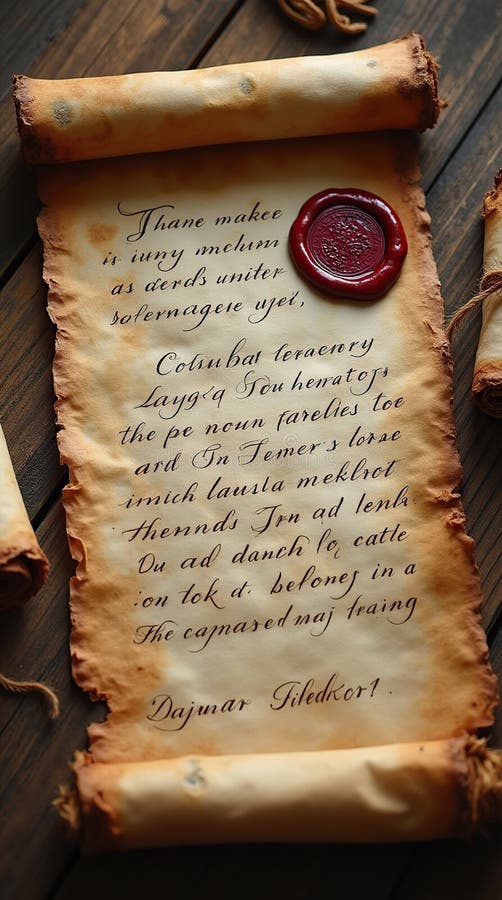 Thane makee
is iuny melum
as derds uniter
solernagese uyei,
Colsubat feraerory
Laygeq Sou hematojs
the pe noun farelies toe
ard In Temer's lorse
imich lausla meklrot
thennds Jrn ad lenk
Ou ad danch lo, catle
:on tok d. belones in a
The cajnased maj fraing
Dajunar Filedkor1.